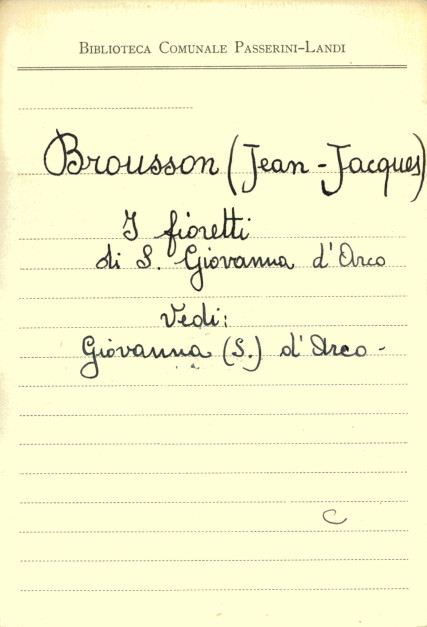 BIBLIOTECA COMUNALE PASSERINI-LANDI
Brousson (Jean-Jacques)
I fioretti
di S. Giovanna d'Arco
Vedi:
Giovanna (S.) d'Arco -
C